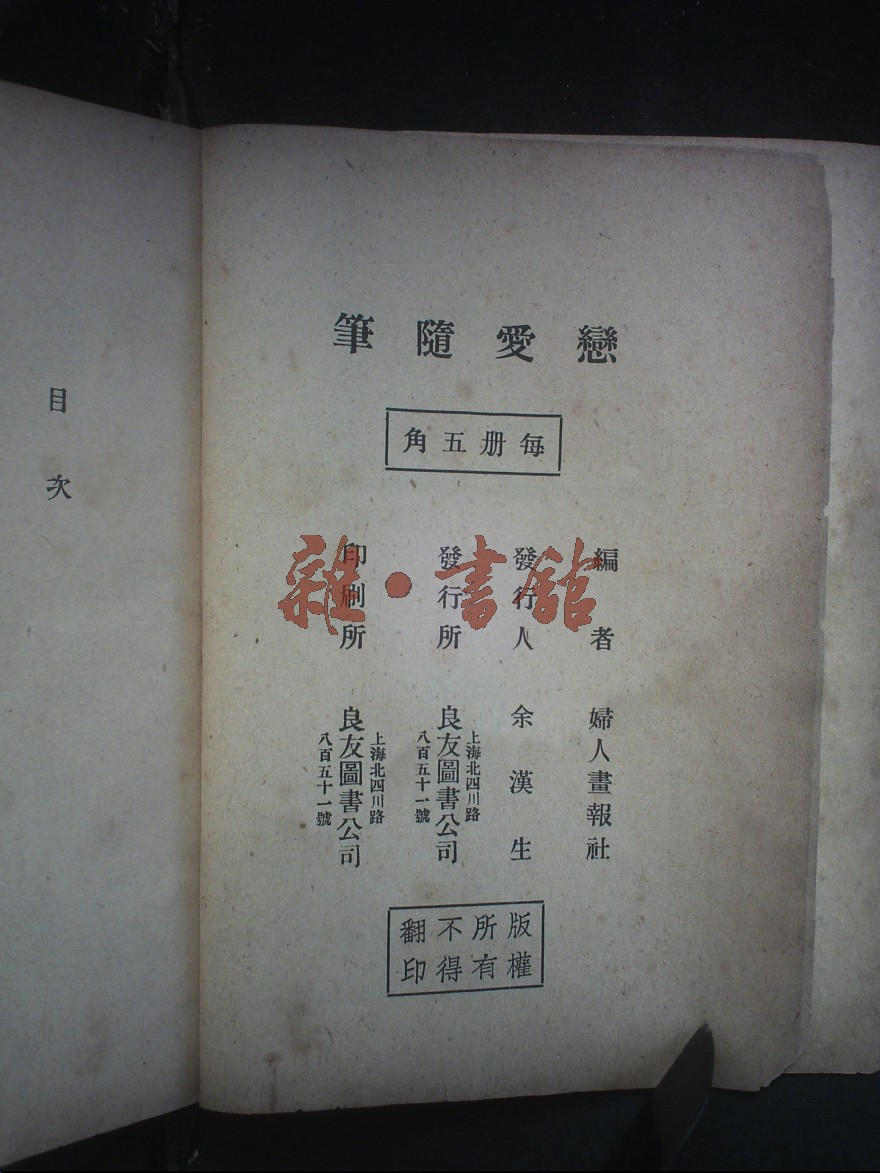 戀愛隨筆
每册五角
編者 婦人畫報社
發行人 余漢生
發行所 良友圖書公司
上海北四川路
八百五十一號
印刷所 良友圖書公司
上海北四川路
八百五十一號
版權所有
不得翻印
目次
雜·書館